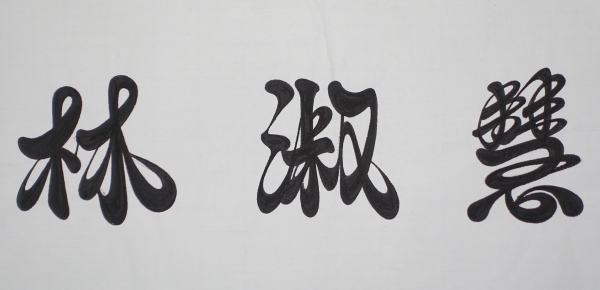 林淑慧